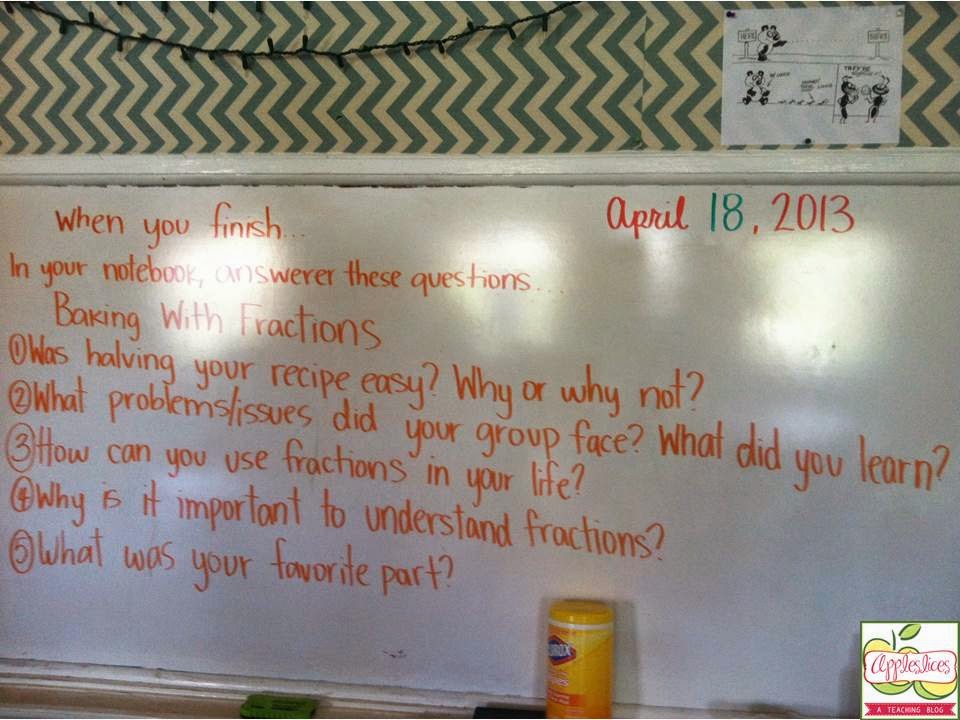 HERE
THEY'RE
When you finish...
April 18, 2013
In your notebook, answerer these questions...
Baking With Fractions
①Was halving your recipe easy? Why or why not?
②What problems/issues did your group face? What did you learn?
③How can you use fractions in your life?
④Why is it important to understand fractions?
⑤What was your favorite part?
CLOROX
Appleslices
A TEACHING BLOG